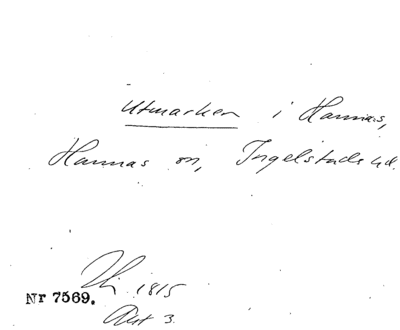 Utmarken i Hannas,
Hannas sn, Ingelstads hd.
1815
Nr 7569.
Akt 3.